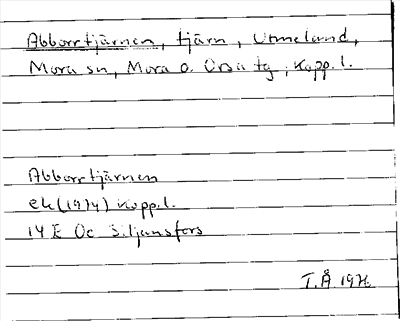 Abborrtjärnen, tjärn, Utmeland,
Mora sn, Mora o. Orsa tg, Kopp. l.
Abborrtjärnen
ek (1974) Kopp. l.
14 E 0c Siljansfors
T.Å 1976